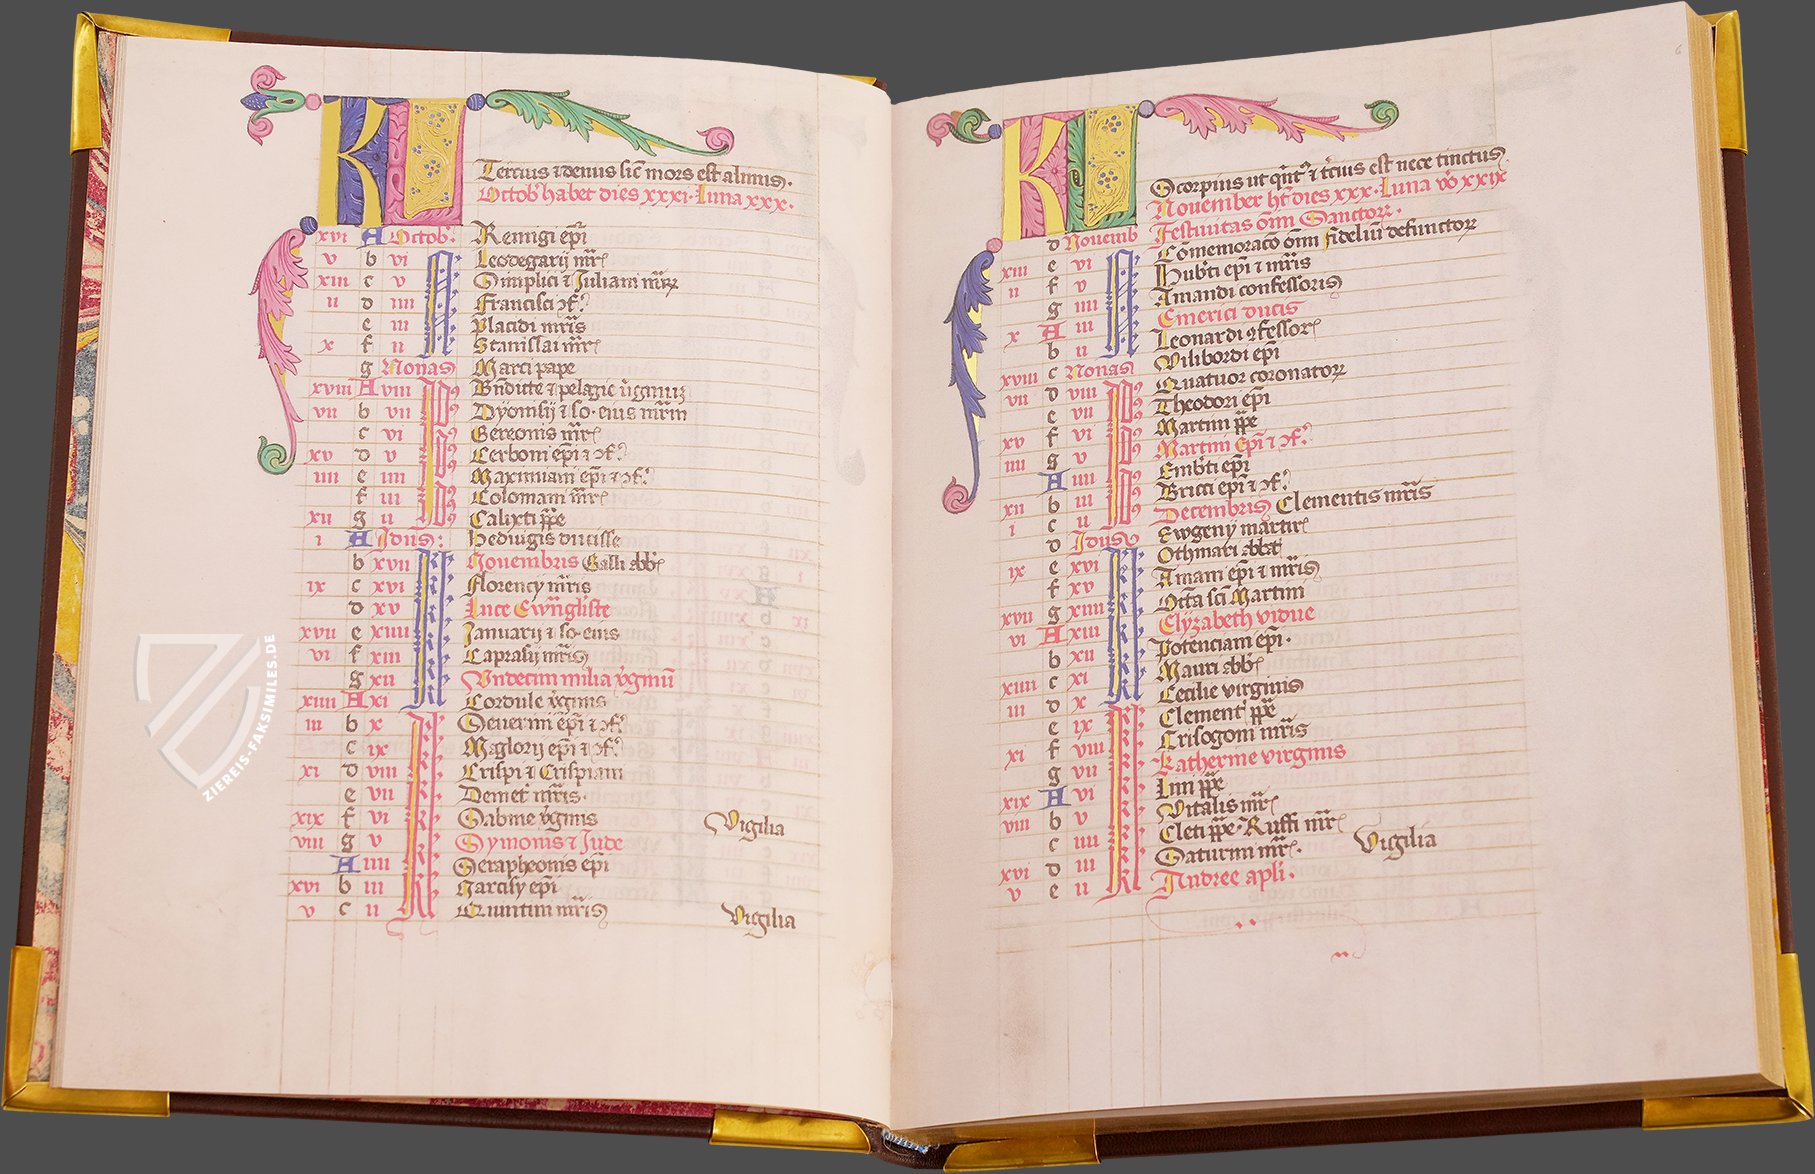 KL
Tercius et denus sic̄ mors est alenus.
Octob' habet dies xxxi. Luna xxx.
xvi A Octob. Remigij ep̄i
v b vi Leodegarij mr̄
xiii c v Simplici et Juliani mr̄
ii d iiii Francisci ꝯf.
e iii Placidi mr̄is
x f ii Stanislai mr̄
g Nonas Marci pape
xviii A viii Bn̄dicte et pelagie v̓ginū
vii b vii Dyonisij et so. eius mr̄m
c vi Gereonis mr̄
xv d v Cerboni ep̄i et ꝯf.
iiii e iiii Maximiani ep̄i et ꝯf.
f iii Colomani mr̄
xii g ii Calixti pp̄e
i A Idus: Hediugis ducisse
b xvii Nouembris Galli abb̄
ix c xvi Florencij mr̄is
d xv Luce Ewn̄gliste
xvii e xiiii Januarij et so. eius
vi f xiii Caprasij mr̄is
g xii Vndecim milia v̓ginū
xiiii A xi Cordule v̓ginis
iii b x Seuerini ep̄i et ꝯf.
c ix Maglorij ep̄i et ꝯf.
xi d viii Crispi et Crispiani
e vii Demet' mr̄is.
xix f vi Sabine v̓ginis Vigilia
viii g v Symonis et Jude
A iiii Serapheonis ep̄i
xvi b iii Narcisy ep̄i
v c ii Quintini mr̄is Vigilia
ZIEREIS-FAKSIMILES.DE
6
KL
Scorpius ut qn̄t' ē t'cius est nece tinctus
Nouember ht̄ dies xxx. Luna v̊o xxix
Festiuitas om̄ Sanctorꝝ.
d Nouemb Cōmemoraco om̄ fideliū defunctorꝝ
xiii e vi Hub'ti ep̄i et mr̄is
ii f v Amandi confessoris
g iiii Emerici ducis
x A iii Leonardi ꝯfessor
b ii Vilibordi ep̄i
xviii c Nonas Quatuor coronatorꝝ
vii d viii Theodori ep̄i
e vii Martini pp̄e
xv f vi Martini Ep̄i et ꝯf.
iiii g v Emb'ti ep̄i
A iiii Bricci ep̄i et ꝯf.
xii b iii Decembris Clementis mr̄is
i c ii Ewgenij martir
d Idus Othmari abbat̄
ix e xvi Amani ep̄i et mr̄is
f xv Octa sc̄i Martini
xvii g xiiii Elyzabeth vidue
vi A xiii Potenciani ep̄i.
b xii Mauri abb̄
xiiii c xi Cecilie virginis
iii d x Clement' pp̄e
e ix Crisogoni mr̄is
xi f viii Katherine virginis
g vii Lini pp̄e
xix A vi Vitalis mr̄
viii b v Cleti pp̄e. Ruffi mr̄
c iiii Saturnini mr̄. Vigilia
xvi d iii Andree apli.
v e ii